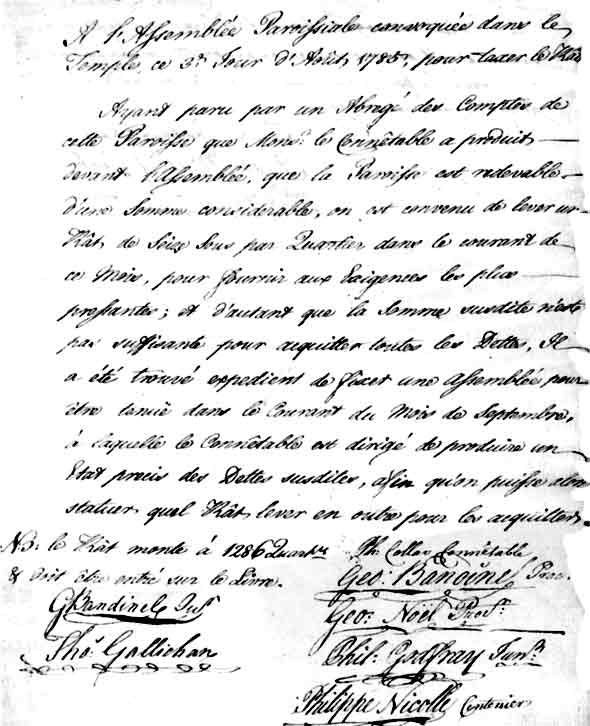 A l'Assemblée Paroissiale convoquée dans le
Temple, ce 3e. Jour d'Août, 1785, pour taxer le Rât
Ayant paru par un Abregé des Comptes de
cette Paroisse que Monsr. le Connêtable a produit
devant l'Assemblé, que la Paroisse est redevable
d'une Somme considerable, on est convenu de lever un
Rât, de Seize Sous par Quartier dans le courant de
ce Mois, pour fournir aux Exigences les plus
pressantes; et d'autant que la Somme susdite n'est
pas suffisante pour acquitter toutes les Dettes, Il
a été trouvé expedient de fixer une Assemblée pour
être tenuë dans le Courant du Mois de Septembre,
à laquelle le Connêtable est dirigé de produire un
Etat precis des Dettes susdites, afin qu'on puisse alors
statuer quel Rât lever en outre pour les acquitter.
NB: le Rât monte à 1286 Quartrs
& doit être entré sur le Livre.
Ph Collas Connêtable
Geo: Bandinel Proc.
GBandinel Junr
Geo: Noël Procr.
Thos. Gallichan
Phil: Godfray Junr.
Philippe Nicolle Centenier